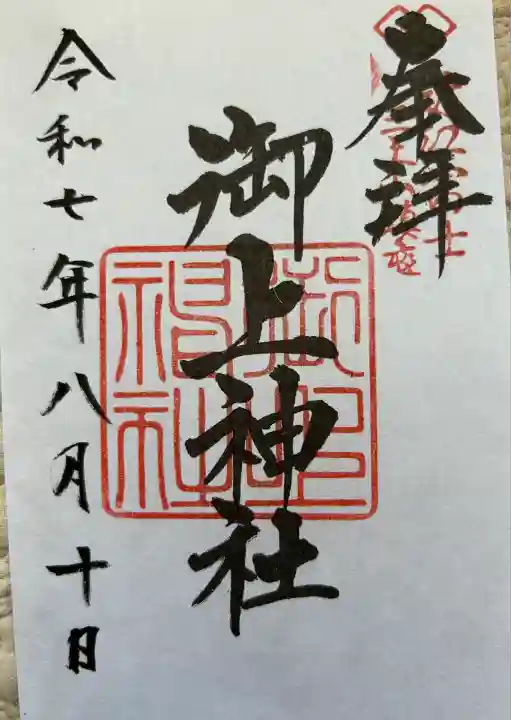 奉拝
御上神社
令和七年八月十日